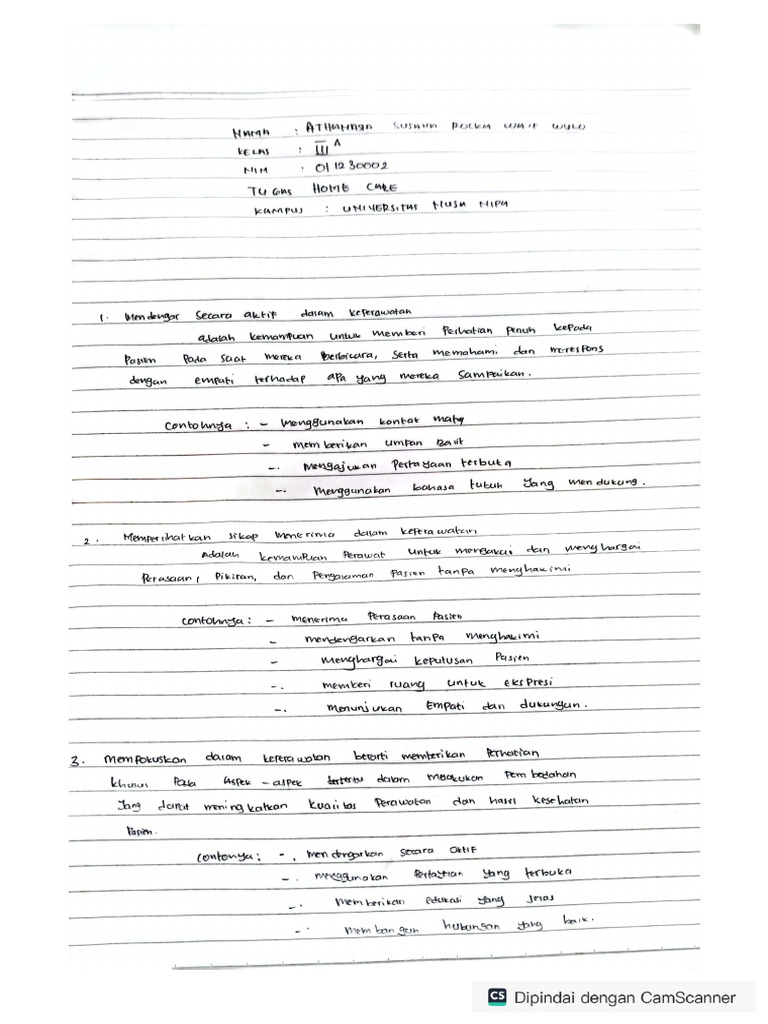 NAMA : ATHANASIA SUSANA POLKA WAIF WULO
KELAS : III A
NIM : 011230002
TUGAS HOME CARE
KAMPUS : UNIVERSITAS NUSA NIPA
1. Mendengar secara aktif dalam keperawatan
adalah kemampuan untuk memberi perhatian penuh kepada
pasien pada saat mereka berbicara, serta memahami dan merespons
dengan empati terhadap apa yang mereka sampaikan.
Contohnya : - Menggunakan kontak mata
- memberikan umpan balik
-. mengajukan pertayaan terbuka
-. menggunakan bahasa tubuh yang mendukung.
2. Memperihatkan sikap menerima dalam keperawatan
Adalah kemampuan perawat untuk mengakui dan menghargai
perasaan, pikiran, dan pengalaman pasien tanpa menghakimi
Contohnya : - menerima perasaan pasien
- mendengarkan tanpa menghakimi
- menghargai keputusan pasien
-. memberi ruang untuk ekspresi
-. menunjukan Empati dan dukungan.
3. Mempokuskan dalam keperawatan berarti memberikan perhatian
khusus pada aspek-aspek dalam melakukan pembedahan
yang dapat meningkatkan kualitas perawatan dan hasil kesehatan
pasien.
Contonya : -. mendengarkan secara aktif
-. menggunakan pertayaan yang terbuka
-. memberikan edukasi yang jelas
-. membangun hubungan yang baik.
CS Dipindai dengan CamScanner